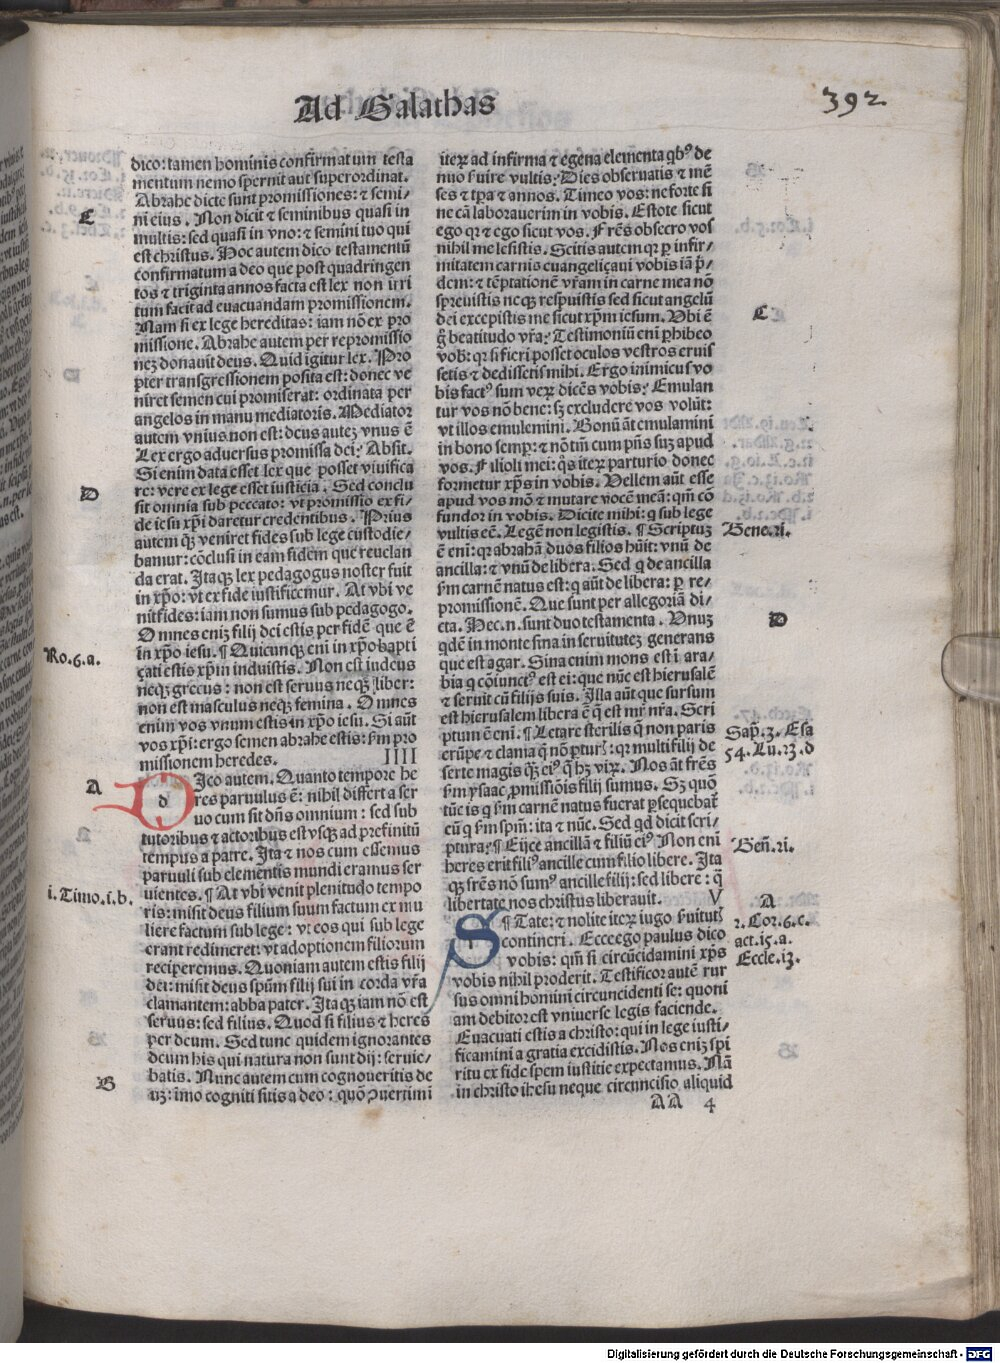 Ad Galathas
392
dico: tamen hominis confirmatum testa
mentum nemo spernit aut superordinat.
Abrahe dicte sunt promissiones: ⁊ semi/
C
ni eius. Non dicit ⁊ seminibus quasi in
multis: sed quasi in vno: ⁊ semini tuo qui
est christus. Hoc autem dico testamentũ
confirmatum a deo que post quadringen
tos ⁊ triginta annos facta est lex non irri
tum facit ad euacuandam promissionem.
Nam si ex lege hereditas: iam nõ ex pro
missione. Abrahe autem per repromissio
nez donauit deus. Quid igitur lex. Pro
pter transgressionem posita est: donec ve
niret semen cui promiserat: ordinata per
angelos in manu mediatoris. Mediator
autem vnius non est: deus autez vnus ẽ
Lex ergo aduersus promissa dei: Absit.
Si enim data esset lex que posset viuifica
D
re: vere ex lege esset iusticia. Sed conclu
sit omnia sub peccato: vt promissio ex fi/
de iesu xp̃i daretur credentibus. Prius
autem qꝫ veniret fides sub lege custodie/
bamur: cõclusi in eam fidem que reuelan
da erat. Itaqꝫ lex pedagogus noster fuit
in xp̃o: vt ex fide iustificemur. At vbi ve
nit fides: iam non sumus sub pedagogo.
Omnes eniz filij dei estis per fidẽ que ẽ
Ro.6.a.
in xp̃o iesu. ¶ Quicunqꝫ eni in xp̃o bapti
çati estis xp̃m induistis. Non est iudeus
neqꝫ grecus: non est seruus neqꝫ liber:
non est masculus neqꝫ femina. Omnes
enim vos vnum estis in xp̃o iesu. Si aũt
vos xp̃i: ergo semen abrahe estis: s̃m pro
missionem heredes. IIII
A
d
Ico autem. Quanto tempore he
res paruulus ẽ: nihil differt a ser
uo cum sit dñs omnium: sed sub
tutoribus ⁊ actoribus est vsqꝫ ad prefinitũ
tempus a patre. Ita ⁊ nos cum essemus
paruuli sub elementis mundi eramus ser
i.Timo.i.b.
uientes. ¶ At vbi venit plenitudo tempo
ris: misit deus filium suum factum ex mu
liere factum sub lege: vt eos qui sub lege
erant redimeret: vt adoptionem filiorum
reciperemus. Quoniam autem estis filij
dei: misit deus spũm filij sui in corda vr̃a
clamantem: abba pater. Itaqꝫ iam nõ est
seruus: sed filius. Quod si filius ⁊ heres
per deum. Sed tunc quidem ignorantes
deum his qui natura non sunt dij: seruie/
B
batis. Nunc autem cum cognoueritis de
uz: imo cogniti sitis a deo: quõ ꝯuertimi
iteꝝ ad infirma ⁊ egena elementa qbꝰ de
nuo s̃uire vultis: Dies obseruatis ⁊ mẽ
ses ⁊ tp̃a ⁊ annos. Timeo vos: ne forte si
ne cã laborauerim in vobis. Estote sicut
ego qꝛ ⁊ ego sicut vos. Fr̃es obsecro vos
nihil me lesistis. Scitis autem qꝛ ꝑ infir/
mitatem carnis euangeliçaui vobis iã p̃/
dem: ⁊ tẽptationẽ vr̃am in carne mea nõ
spreuistis neqꝫ respuistis sed sicut angelũ
C
dei excepistis me sicut xp̃m iesum. Vbi ẽ
g̃ beatitudo vr̃a: Testimoniũ eni ꝑhibeo
vob: qꝛ si fieri posset oculos vestros eruis
setis ⁊ dedissetis mihi. Ergo inimicus vo
bis factꝰ sum veꝝ dicẽs vobis: Emulan
tur vos nõ bene: sꝫ excludere vos volũt:
vt illos emulemini. Bonũ aũt emulamini
in bono semꝑ: ⁊ nõ tm̃ cum p̃ns suꝫ apud
vos. Filioli mei: q̃s iteꝝ parturio donec
formetur xp̃s in vobis. Vellem aũt esse
apud vos mõ ⁊ mutare vocẽ meã: qm̃ cõ
fundor in vobis. Dicite mihi: q̃ sub lege
Gene.ri.
vultis eẽ. Legẽ non legistis. ¶ Scriptuꝫ
ẽ eni: qꝛ abrahã duos filios hũit: vnũ de
ancilla: ⁊ vnũ de libera. Sed q̃ de ancilla
s̃m carnẽ natus est: q̃ aũt de libera: ꝑ re/
promissionẽ. Que sunt per allegoriã di/
D
cta. Hec.n. sunt duo testamenta. Vnuꝫ
qdẽ in monte sina in seruitutez generans
que est agar. Sina enim mons est i ara/
bia q̃ cõiunctꝰ est ei: que nũc est hierusalẽ
⁊ seruit cũ filijs suis. Illa aũt que sursum
est hierusalem libera ẽ q̃ est mr̃ nr̃a. Scri
Sap̃.3. Esa
ptum ẽ eni. ¶ Letare sterilis q̃ non paris
54. Lu.23.d
erũpe ⁊ clama q̃ nõ pturꝭ: qꝛ multi filij de
serte magis qꝫ eiꝰ q̃ hꝫ viꝝ. Nos aũt fr̃es
s̃m ysaac ꝓmissiõis filij sumus. Sꝫ quõ
tũc is q̃ s̃m carnẽ natus fuerat ꝑsequebat̃
eũ q̃ s̃m spm̃: ita ⁊ nũc. Sed qd dicit scri/
Geñ.ri.
ptura: ¶ Eijce ancillã ⁊ filiũ eiꝰ Non eni
heres erit filiꝰ ancille cum filio libere. Ita
qꝫ fr̃es nõ sumꝰ ancille filij: sed libere: q̃
libertate nos christus liberauit. V
A
S
¶ Tate: ⁊ nolite iteꝝ iugo s̃uitutꝭ
r.Cor.6.c.
contineri. Ecce ego paulus dico
act.15.a.
vobis: qm̃ si circũcidamini xp̃s
Eccle.i3.
vobis nihil proderit. Testificor autẽ rur
sus omni homini circuncidenti se: quoni
am debitor est vniuerse legis faciende.
Euacuati estis a christo: qui in lege iusti/
ficamini a gratia excidistis. Nos eniz spi
ritu ex fide spem iustitie expectamus. Nã
in christo ihesu neque circuncisio aliquid
AA 4
Digitalisierung gefördert durch die Deutsche Forschungsgemeinschaft - DFG